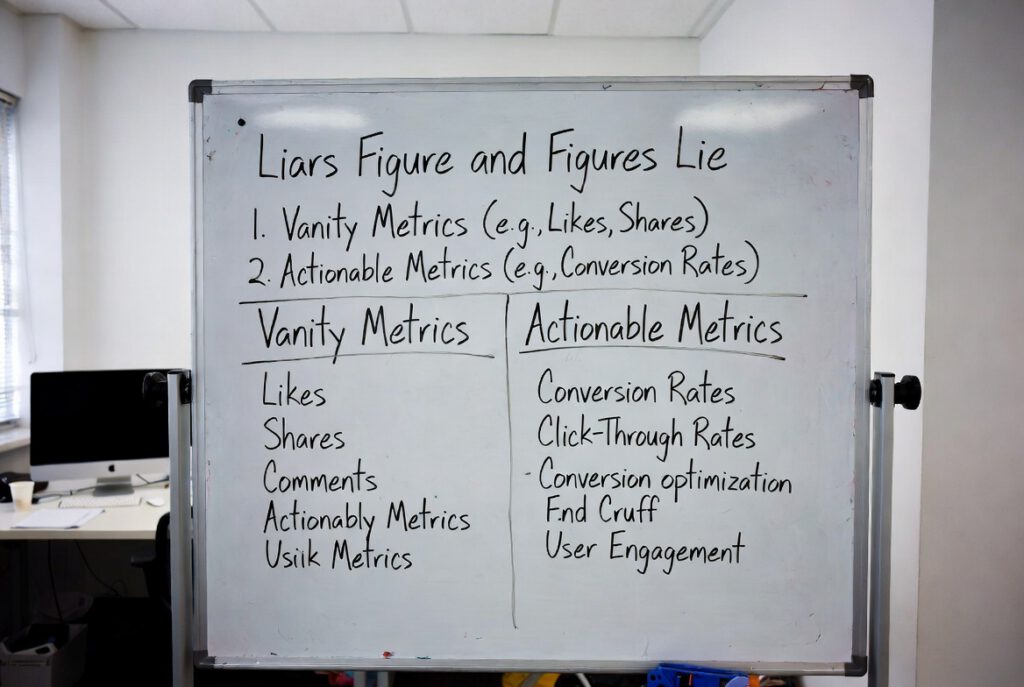 Liars Figure and Figures Lie
1. Vanity Metrics (e.g., Likes, Shares)
2. Actionable Metrics (e.g., Conversion Rates)
Vanity Metrics
Likes
Shares
Comments
Actionably Metrics
Usiik Metrics
Actionable Metrics
Conversion Rates
Click-Through Rates
- Conversion optimization
Fnd Cruff
User Engagement